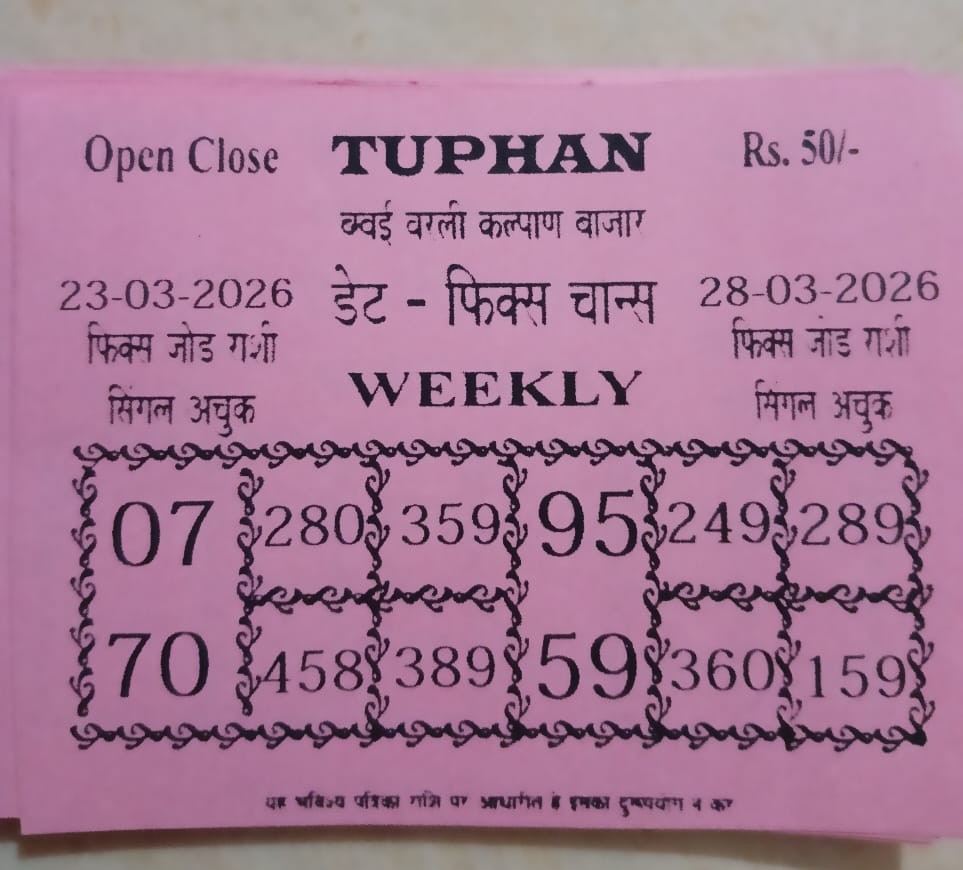 Open Close TUPHAN Rs. 50/-
बम्वई वरली कल्पाण बाजार
23-03-2026 डेट - फिक्स चान्स 28-03-2026
फिक्स जोड राशी फिक्स जोड राशी
सिंगल अचुक WEEKLY सिंगल अचुक
07 280 359 95 249 289
70 458 389 59 360 159
यह भविष्य पत्रिका राशि पर आधारित है इसका दुरूपयोग न करे